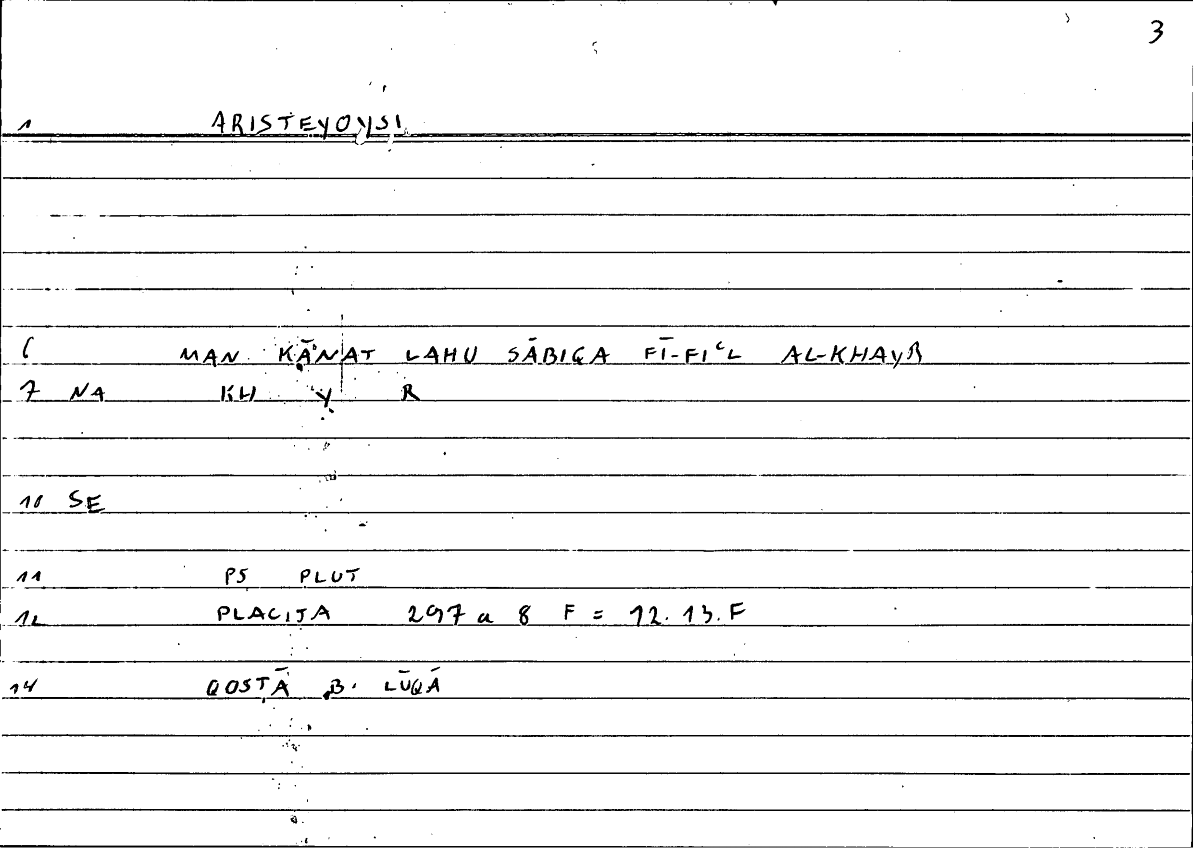 3
1 ARISTEYOYSI
6 MAN KĀNAT LAHU SĀBIQA FĪ-FIʿL AL-KHAYR
7 NA KH Y R
10 SE
11 PS PLUT
12 PLACITA 297 a 8 F = 12.13.F
14 QOSṬĀ B. LŪQĀ